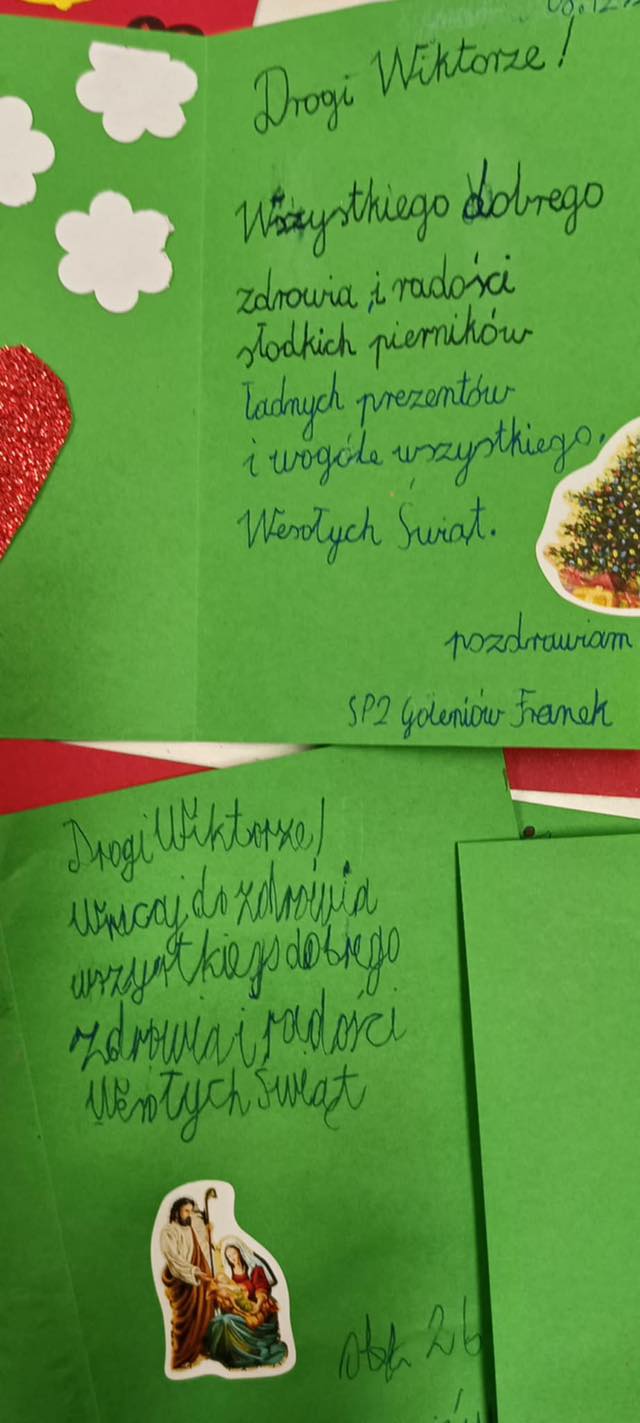 Drogi Wiktorze!
Wszystkiego dobrego
zdrowia i radości
słodkich pierników
ładnych prezentów
i wogóle wszystkiego.
Wesołych Świąt.
pozdrawiam
SP2 Goleniów Franek
Drogi Wiktorze!
Wracaj do zdrowia
wszystkiego dobrego
zdrowia i radości
Wesołych Świąt
2b